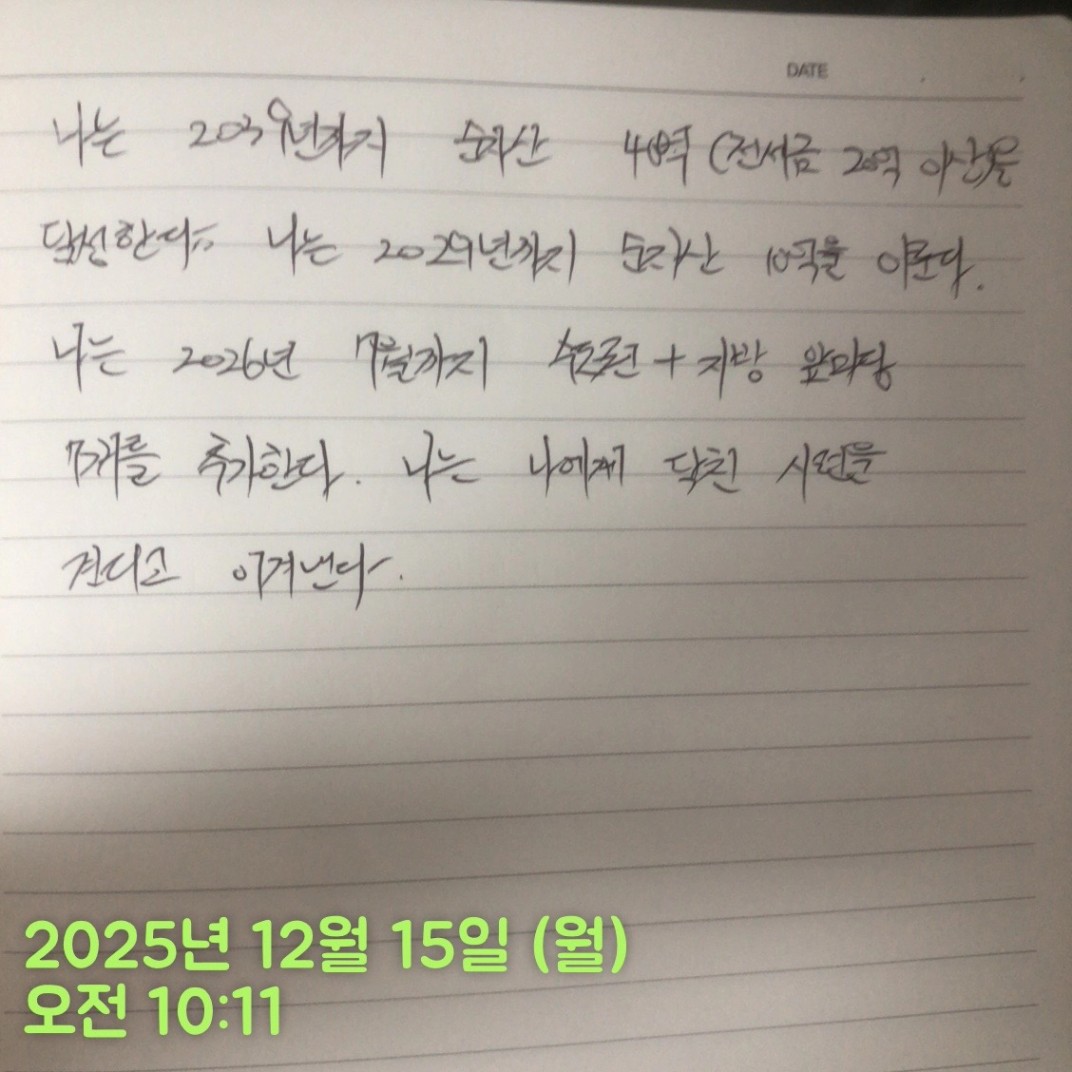 DATE
나는 2039년까지 순자산 40억 (전세금 20억 이상)을
달성한다. 나는 2029년까지 순자산 10억을 이룬다.
나는 2026년 7월까지 수도권 + 지방 앞마당
7개를 추가한다. 나는 나에게 닥친 시련을
견디고 이겨낸다.
2025년 12월 15일 (월)
오전 10:11